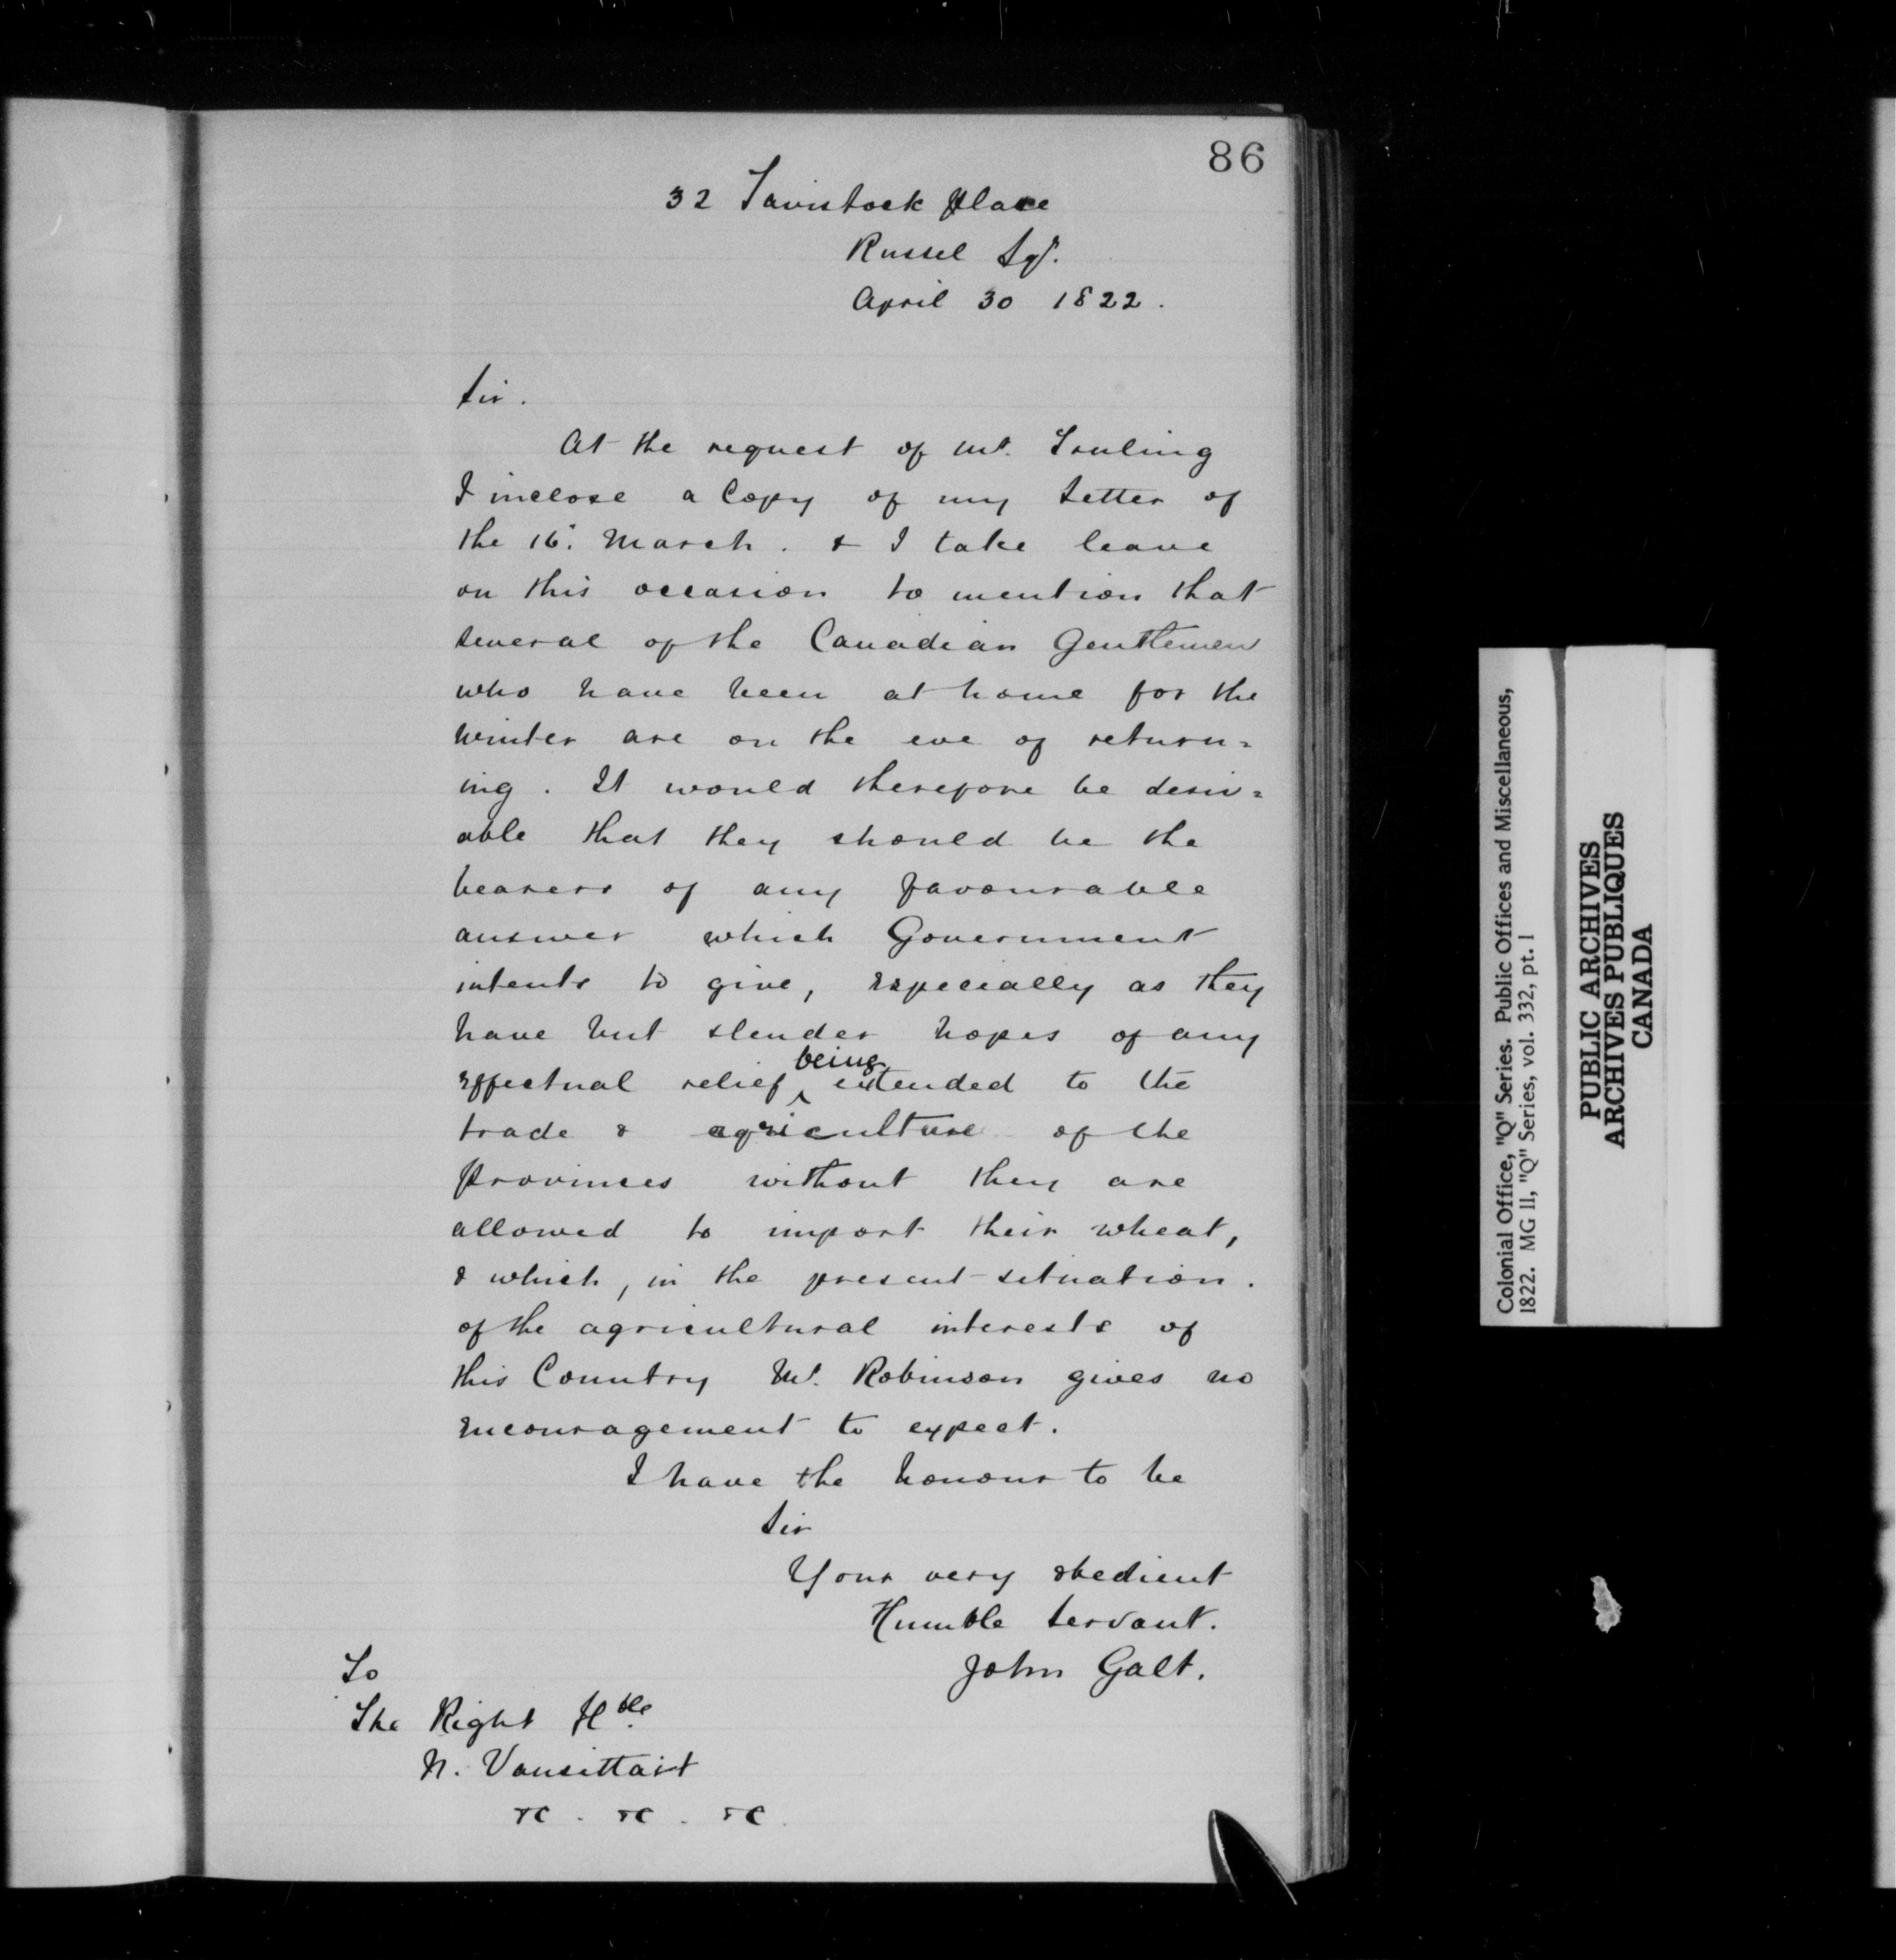 86
32 Tavistock place
Russel Sqr.
April 30 1822.
Sir.
At the request of Mr.
I inclose a Copy of my Letter of
the 16. March. & I take leave
on this occasion to mention that
several of the Canadian Gentlemen
who have been at home for the
winter are on the eve of return=
ing. It would therefore be desir=
able that they should be the
bearers of any favourable
answer which Government
intents to give, especially as they
have but slender hopes of any
effectual relief being extended to the
trade & agriculture of the
Provinces without they are
allowed to import their wheat,
& which, in the present situation.
of the agricultural interests of
this Country Mr. Robinson gives no
encouragement to expect.
I have the honour to be
Sir
Your very obedient
Humble Servant.
John Galt.
To
The Right Hble
N. Vansittart
&c. &c. &c.
Colonial Office, "Q" Series. Public Offices and Miscellaneous,
1822. MG 11, "Q" Series, vol. 332, pt. 1
PUBLIC ARCHIVES
ARCHIVES PUBLIQUES
CANADA